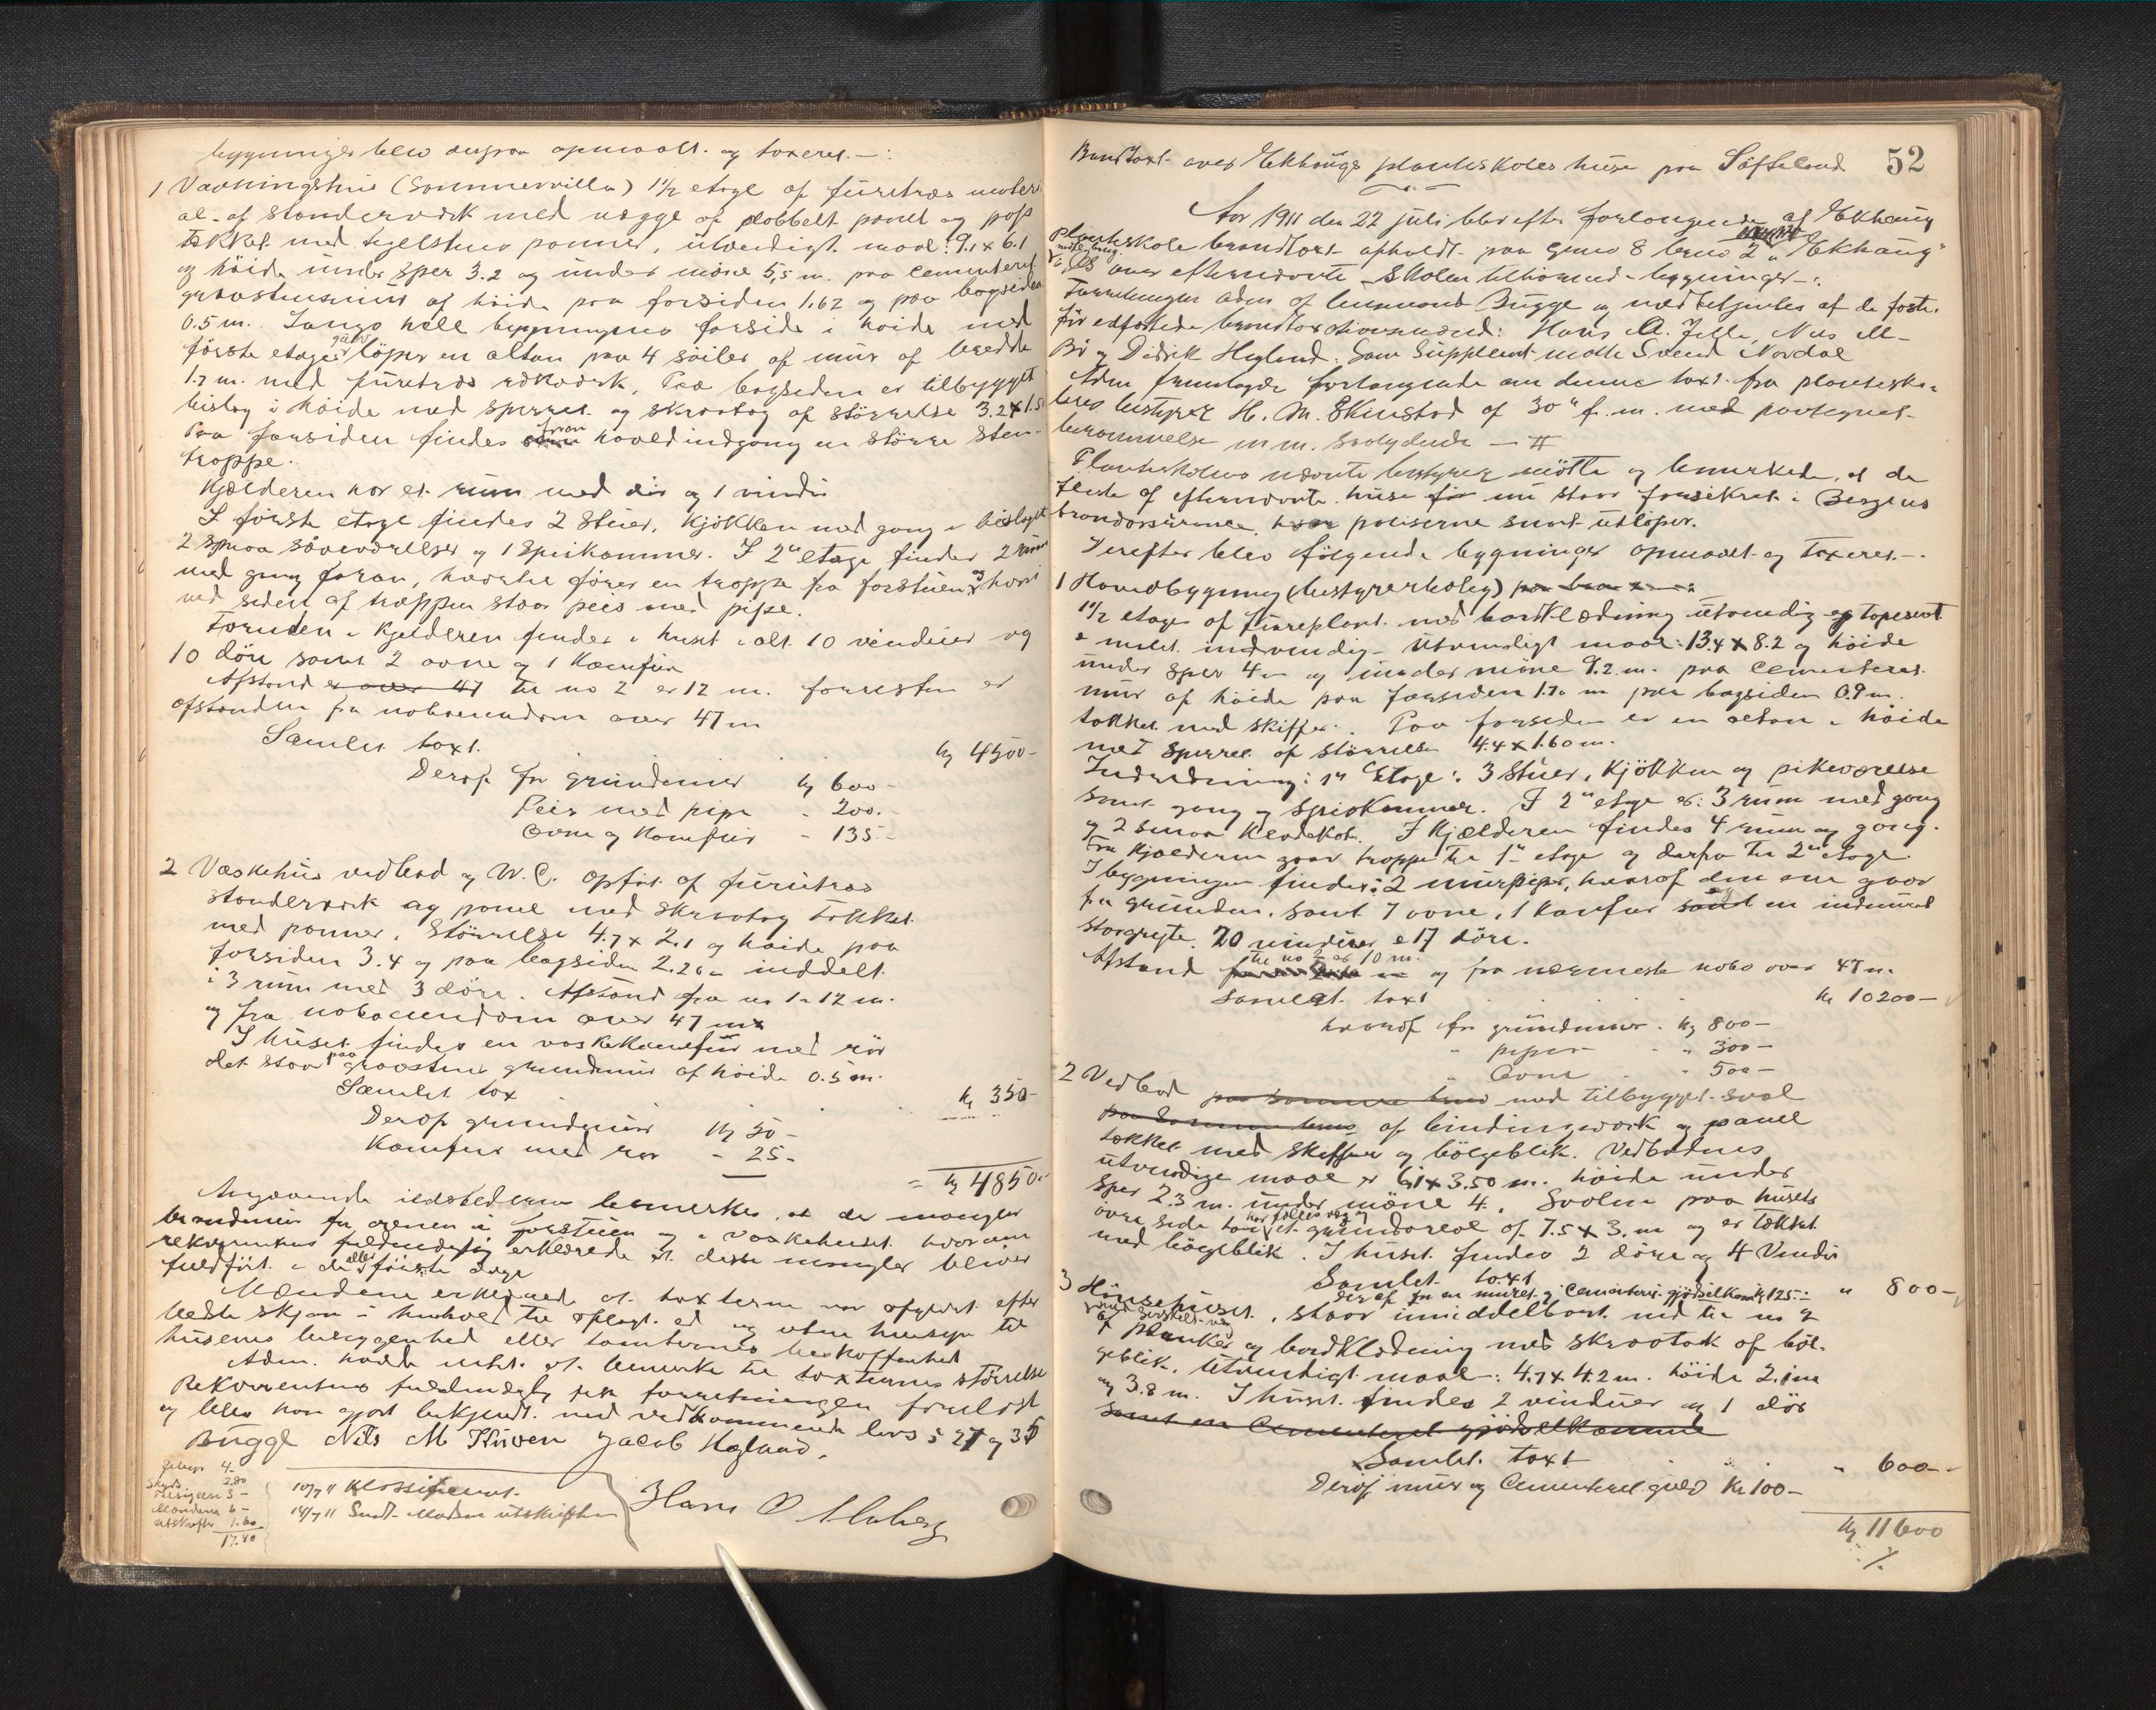 bygninger blev derpaa opmaalt og taxeret. —:
1 Vaaningshus (Sommervilla) 1½ etage af furetræs materi
al - af standerværk med vægge af dobbelt panel og pap
tækket med tegelstens panner, utvendigt maal: 9.1 x 6.1
og höide under sper 3.2 og under möne 5,5 m. paa cementeret
graastensmur af höide paa forsiden 1.62 og paa bagsiden
0.5 m. Langs hele bygningens forside i höide med
förste etages gulv löper en altan paa 4 söiler af mur af bredde
1.7 m. med furetræs rækværk. Paa bagsiden er tilbygget
bislag i höide med sperret og skraatag af störrelse 3.2 x 1.5
Paa forsiden findes foran hovedindgang en större sten-
trappe.
Kjælderen har et rum med dör og 1 vindu
I förste etage findes 2 stuer, kjökken med gang i bislaget
2 smaa soveværelser og 1 spiskammer. I 2en etage findes 2 rum
med gang foran, hvortil förer en trappe fra forstuen, og hvori
ved siden af trappen staar peis med pipe.
Foruden i kjelderen findes i huset i alt 10 vinduer og
10 döre samt 2 ovne og 1 Komfur
Afstand er over 47 til no 2 er 12 m. forresten er
afstanden fra naboeiendom over 47 m
Samlet taxt. kr 4500-
Deraf for grundmur kr 600-
Peis med pipe - 200.-
Ovne og Komfur - 135.-
2 Vaskehus vedbod og W.C. opfört af furutræs
standerværk og panel med skraatag tækket
med panner. Störrelse 4.7 x 2.1 og höide paa
forsiden 3.4 og paa bagsiden 2.20 m inddelt
i 3 rum med 3 döre. Afstand fra no 1 12 m.
og fra naboeiendom over 47 m
I huset findes en vaskekomfur med rör
det staar paa graastens grundmur af höide 0.5 m.
Samlet tax kr 350-
Deraf grundmur kr 50-
Komfur med rör - 25-
= kr 4850.-
Angaaende ildstederne bemerkes, at der mangler
brandmur for ovnen i forstuen og i vaskehuset hvorom
rekvirentens fuldmægtig erklærede at disse mangler bliver
fuldfört i de allerförste dage
Mændene erklærede at taxterne var afgivet efter
bedste skjön i henhold til aflagt ed og uten hensyn til
husenes beliggenhed eller tomternes beskaffenhed
Adm. havde intet at bemerke til taxternes störrelse
Rekvirentens fuldmægtig fik forretningen forelæst
og blev han gjort bekjendt med vedkommende lovs § 27 og 35
Bugge Nils M Kuven Jacob Hægland.
Gebyr 4-
Skyds 2.80
Tilsigelse 3-
Mændene 6-
Utskrifter 1.60
17.40
10/7 11 Klassificeret.
14/7 11 Sendt Madsen utskriften
Hans O Moberg
52
Brandtaxt over Ekhaugs planteskoles huse paa Söfteland
Aar 1911 den 22 juli blev efter forlangende af Ekhaug
planteskole brandtaxt afholdt paa gno 8 bno 2 "Ekhaug"
i Os over efternævnte skolen tilhörende bygninger -:
Forretningen adm. af lensmand Bugge og med betjentes af de faste
för edfæstede brandtaxtmænd: Hans A. Jelle, Nils M
Bö og Didrik Hegland. Som supplent mötte Svend Nordal
Adm fremlagde forlangende om denne taxt fra plantesko-
lens bestyrer H. M. Skinstad af 30' f. m. med paategnet
berammelse m.m. saalydende — #
Planteskolens nævnte bestyrer mötte og bemerkede, at de
fleste af efternævnte huse nu staar forsikret i Bergens
brandassurance, hvor poliserne snart utlöper.
Derefter blev fölgende bygninger opmaalt og taxeret -.
1 Hovedbygning (bestyrerbolig)
1½ etages af fureplank med bordklædning utvendig og tapeseret
& malet indvendig - Utvendigt maal: 13.4 x 8.2 og höide
under sper 4 m og under möne 9.2 m. paa cementeret
mur af höide paa forsiden 1.70 m paa bagsiden 0.9 m.
tækket med skiffer. Paa forsiden er en altan i höide
med sperret af störrelse 4.4 x 1.60 m.
Indredning: 1ste Etage: 3 Stuer, Kjökken og pikeværelse
samt gang og spiskammer. I 2en etage er: 3 rum med gang
og 2 smaa klædekot. I Kjælderen findes 4 rum og gang.
Fra kjælderen gaar trappe til 1ste etage og derfra til 2en etage.
I bygningen findes: 2 murpiper, hvoraf den ene gaar
fra grunden, samt 7 ovne, 1 komfur og en indmuret
storgryte. 20 vinduer & 17 döre.
Afstand til no 2 er 10 m. og fra nærmeste nabo over 47 m.
Samlet taxt kr 10200-
hvoraf for grundmur. kr 800-
" piper - " 300-
" Ovne " 500-
2 Vedbod paa samme bno med tilbygget sval
paa samme bno af bindingsværk og panel
tækket med Skiffer og bölgeblik. Vedbodens
utvendige maal er 6.1 x 3.50 m. höide under
sper 2.3 m. under möne 4. Svalen paa husets
övre side har fælles væg og et grundareal af 7.5 x 3. m og er tækket
med bölgeblik. I huset findes 2 döre og 4 Vinduer
Samlet taxt " 800-
deraf for en muret og cementeret gjödselkum kr 125.-
3 Hönsehuset, staar umiddelbart ved til no 2
med særskilt væg
af planker og bordklædning med skraatak af böl-
geblik. Utvendigt maal: 4.7 x 4.2 m. höide 2.1 m
og 3.8 m. I huset findes 2 vinduer og 1 dör
samt en Cementeret gjödselkumme
Samlet taxt " 600-
Deraf mur og Cementeret gulv Kr 100-
kr 11600
./.